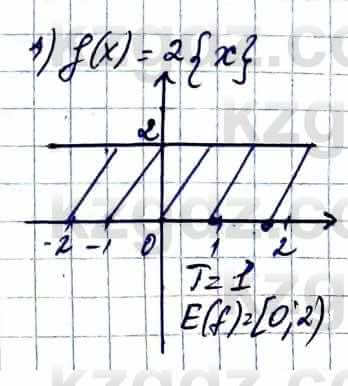 1) f(x) = 2{x}
2
-2 -1 0 1 2
T = 1
E(f) = [0; 2)